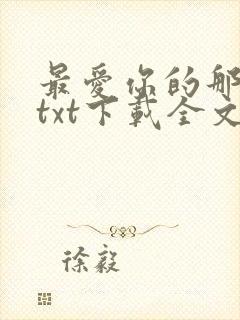 最爱你的那
txt下载全文
徐毅